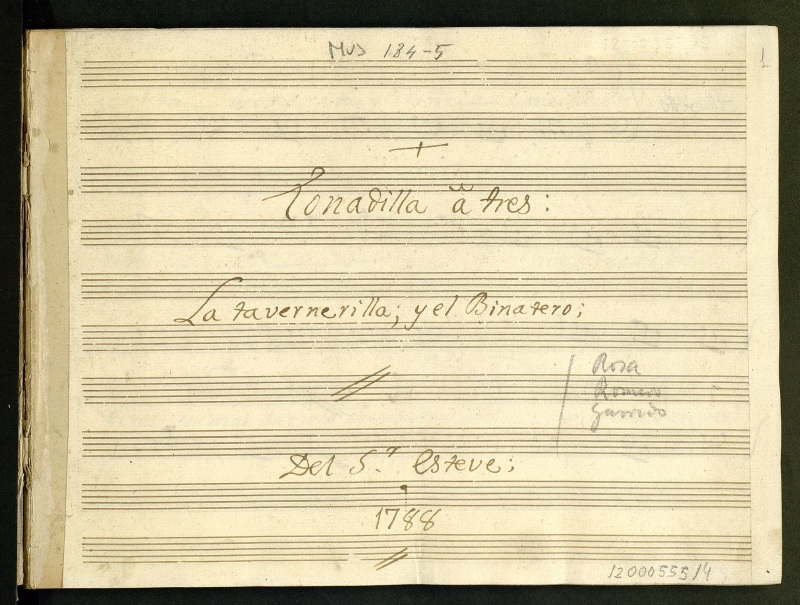 MUS 184-5
1
Tonadilla a tres:
La tavernerilla; y el Binatero;
Rosa
Romero
Garrido
Del S.r Esteve;
1788
1200055514